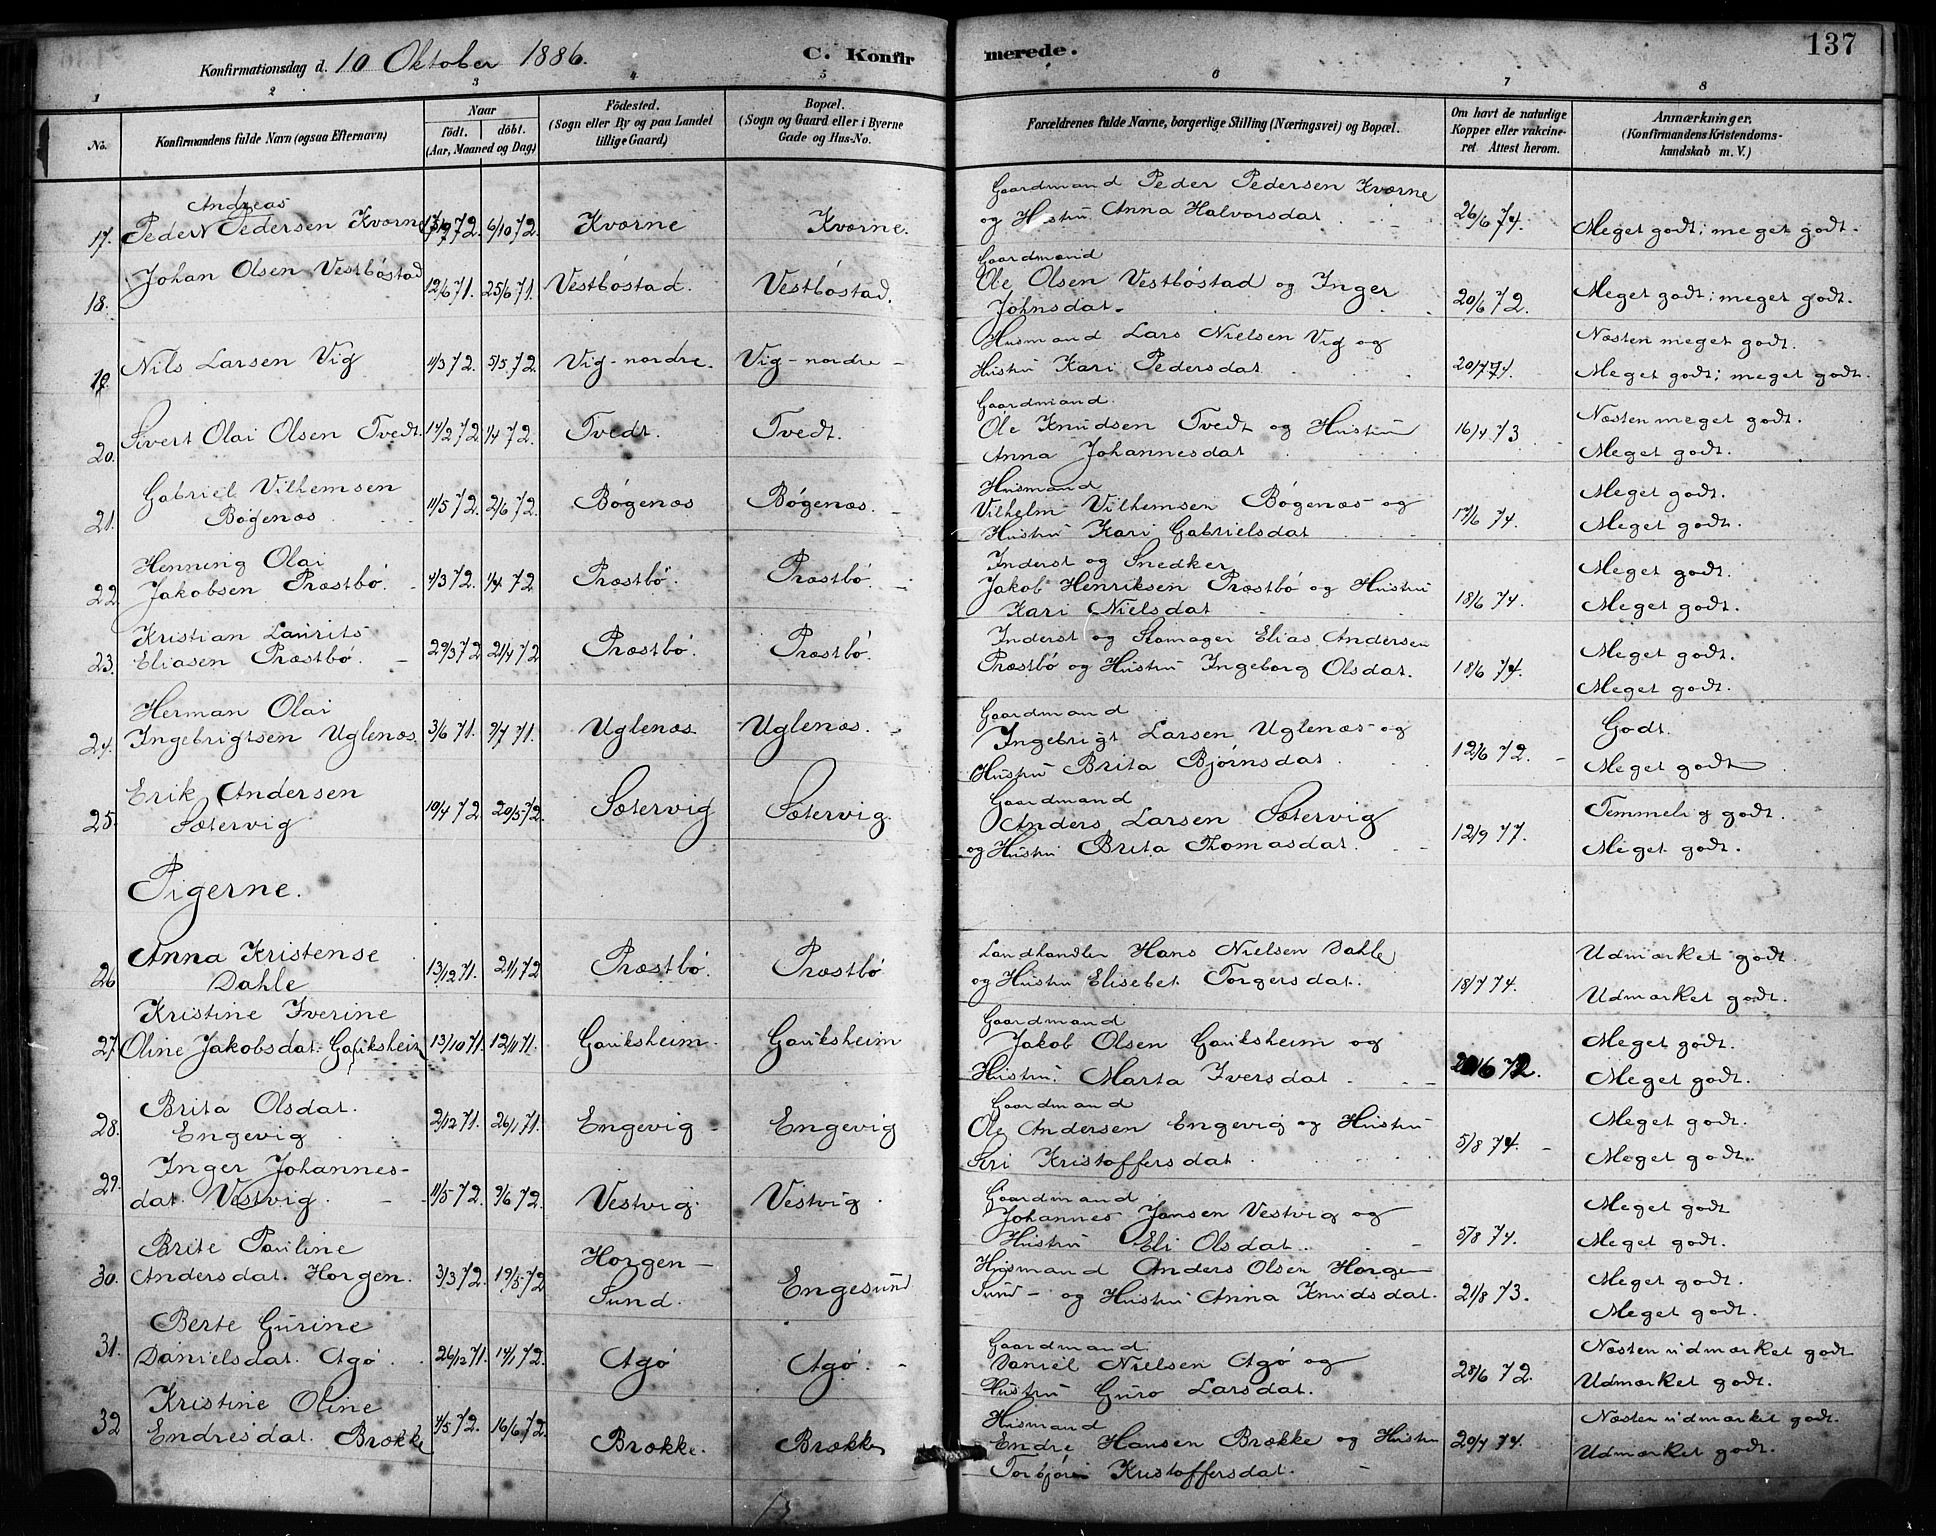 137
Konfirmationsdag d. 10 Oktober 1886.
C. Konfirmerede.
1 2 3 4 5 6 7 8
No.
Konfirmandens fulde Navn (ogsaa Efternavn).
Naar
födt. döbt.
(Aar, Maaned og Dag)
Födested.
(Sogn eller By og paa Landet
tillige Gaard)
Bopæl.
(Sogn og Gaard eller i Byerne
Gade og Hus-No.
Forældrenes fulde Navne, borgerlige Stilling (Næringsvei) og Bopæl.
Om havt de naturlige
Kopper eller vakcine-
ret. Attest herom.
Anmærkninger.
(Konfirmandens Kristendoms-
kundskab m. V.)
17. Andreas
Peder Pedersen Kværne 6/10 72. Kværne Kværne.
Gaardmand Peder Pedersen Kværne
og Hustru Anna Halvorsdat. 26/6 74. Meget godt; meget godt.
18. Johan Olsen Vestbøstad 12/6 71. 25/6 71. Vestbøstad. Vestbøstad.
Gaardmand
Ole Olsen Vestbøstad og Inger
Johnsdat. 20/6 72. Meget godt; meget godt.
19. Nils Larsen Vig 11/3 72. 5/5 72. Vig-nordre. Vig-nordre
Husmand Lars Nielsen Vig og
Hustru Kari Pedersdat. 20/7 74. Næsten meget godt.
Meget godt; meget godt.
20. Sivert Olai Olsen Tvedt. 14/2 72 1/4 72. Tvedt. Tvedt.
Gaardmand.
Ole Knudsen Tvedt og Hustru
Anna Johannesdat 16/4 73. Næsten meget godt.
Meget godt.
21. Gabriel Vilhemsen
Bøgenæs 11/5 72. 2/6 72. Bøgenæs Bøgenæs.
Husmand
Vilhelm Vilhemsen Bøgenæs og
Hustru Kari Gabrielsdat 17/6 74. Meget godt.
Meget godt.
22. Henning Olai
Jakobsen Præstbø. 4/3 72. 1/4 72. Præstbø. Præstbø.
Inderst og Snedker
Jakob Henriksen Præstbø og Hustru
Kari Nielsdat 18/6 74. Meget godt.
Meget godt.
23. Kristian Laurits
Eliasen Præstbø. 29/3 72 21/4 72 Præstbø. Præstbø.
Inderst og Skomager Elias Andersen
Præstbø og Hustru Ingeborg Olsdat. 18/6 74. Meget godt.
Meget godt.
24. Herman Olai
Ingebrigtsen Uglenæs. 3/6 71. 9/7 71. Uglenæs Uglenæs.
Gaardmand
Ingebrigt Larsen Uglenæs og
Hustru Brita Bjørnsdat 12/6 72. Godt.
Meget godt.
25. Erik Andersen
Sætervig 10/4 72 20/5 72. Sætervig Sætervig.
Gaardmand
Anders Larsen Sætervig
og Hustru Brita Thomasdat. 12/9 77. Temmelig godt.
Meget godt.
Pigerne.
26 Anna Kristense
Dahle 13/12 71. 21/1 72 Præstbø. Præstbø
Landhandler Hans Nielsen Dahle
og Hustru Elisebet Torgersdat. 18/7 74. Udmærket godt.
Udmærket godt.
27. Kristine Iverine
Oline Jakobsdat. Gauksheim 13/10 71. 12/11 71. Gauksheim. Gauksheim
Gaardmand
Jakob Olsen Gauksheim og
Hustru Marta Iversdat. Meget godt.
Meget godt.
28. Brita Olsdat.
Engevig 26/1 71. Engevig Engevig
Gaardmand
Ole Andersen Engevig og Hustru
Siri Kristoffersdat. 5/8 74. Meget godt.
Meget godt.
29. Inger Johannes-
dat. Vestvig. 11/5 72. 9/6 72. Vestvig. Vestvig.
Gaardmand
Johannes Jansen Vestvig og
Hustru Eli Olsdat. 5/8 74. Meget godt
Meget godt.
30. Brite Pauline
Andersdat. Horgen. 3/3 72. 19/5 72 Horgen-
Sund. Engesund
Husmand Anders Olsen Horgen
Sund - og Hustru Anna Knudsdat. 21/8 73. Meget godt.
Meget godt.
31. Berte Gurine
Danielsdat. Agø. 26/12 71. 14/1 72. Agø Agø.
Gaardmand.
Daniel Nielsen Agø og
Hustru Guro Larsdat. 28/6 72. Næsten udmærket godt
Udmærket godt.
32 Kristine Oline
Endresdat. Brække 4/5 72. 16/6 72. Brække. Brække
Husmand
Endre Hansen Brække og Hustru
Torbjør Kristoffersdat. 20/7 74. Næsten udmærket godt.
Udmærket godt.